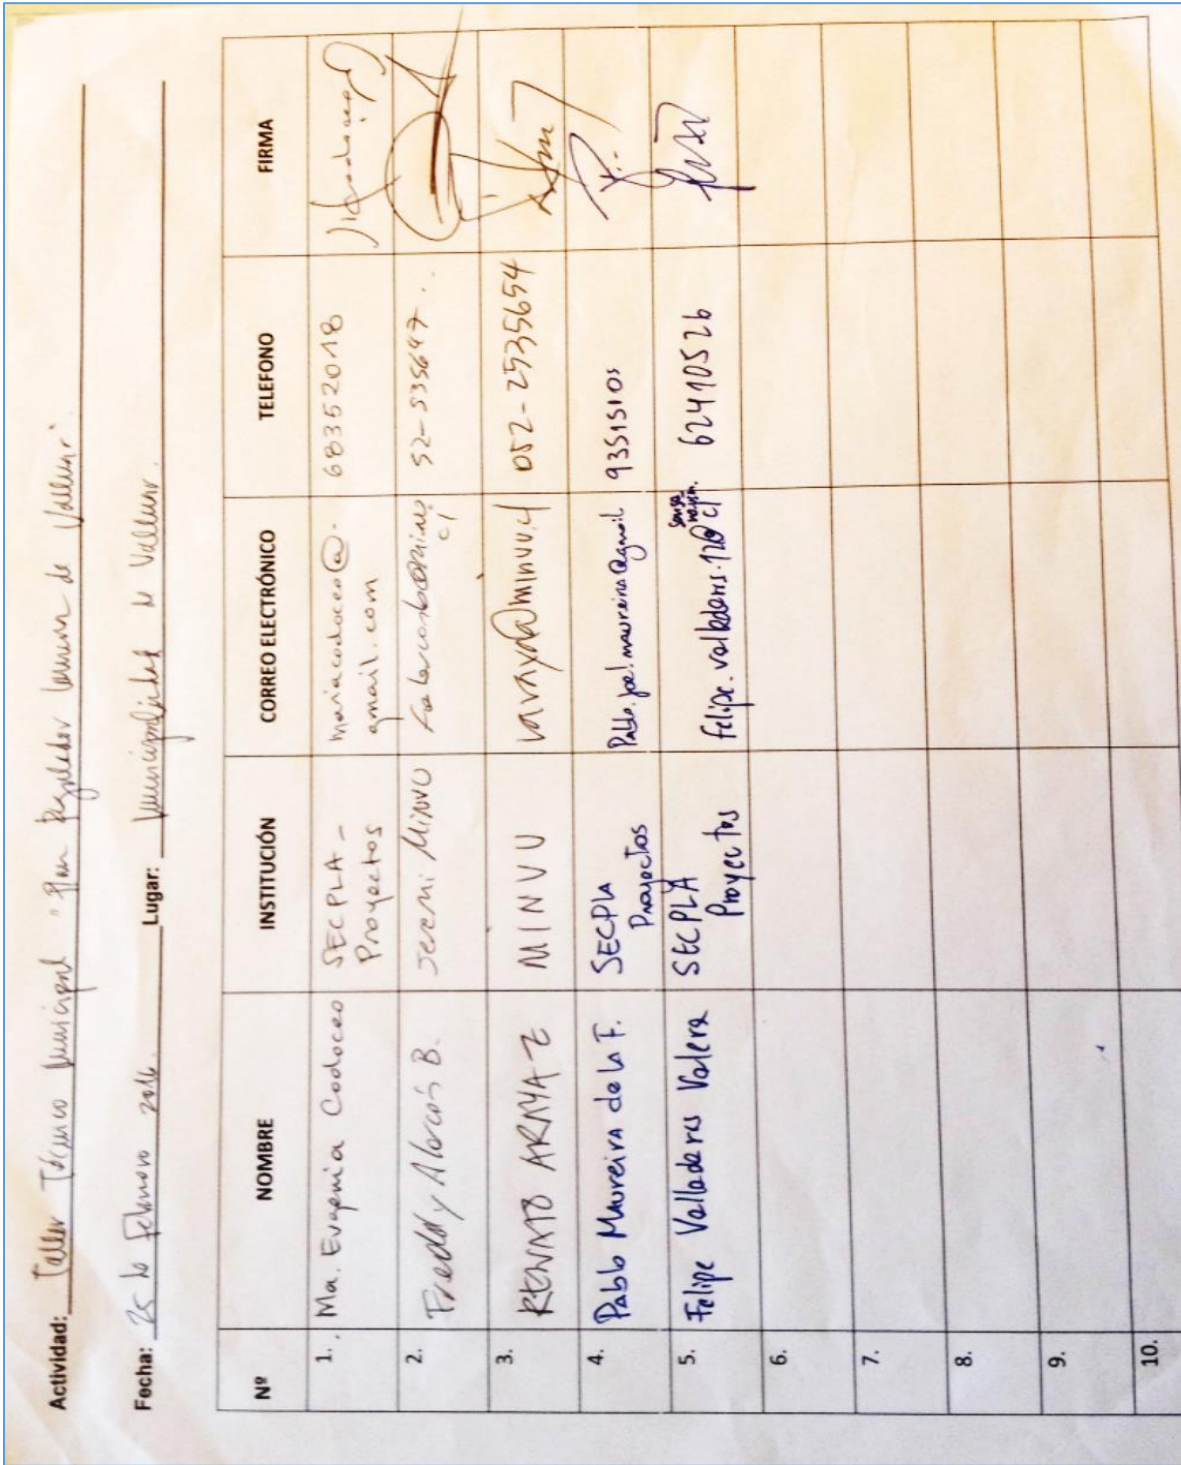 Actividad: Taller Técnico Municipal "Plan Regulador Comuna de Vallenar"
Fecha: 25 de Febrero 2016. Lugar: Municipalidad de Vallenar.
Nº NOMBRE INSTITUCIÓN CORREO ELECTRÓNICO TELEFONO FIRMA
1. Ma. Eugenia Codoceo SECPLA - mariacodoceo@ 68352018
Proyectos gmail.com
2. Freddy Alarcón B. Seremi MINVU 52-535647..
3. RENATO ARAYA Z MINVU raraya@minvu.cl 052-2535654
4. Pablo Maureira de la F. SECPLA Pablo.joel.maureira@gmail 93515105
Proyectos
5. Felipe Valladares Valera SECPLA felipe.valladares.12@ 62410526
Proyectos
6.
7.
8.
9.
10.